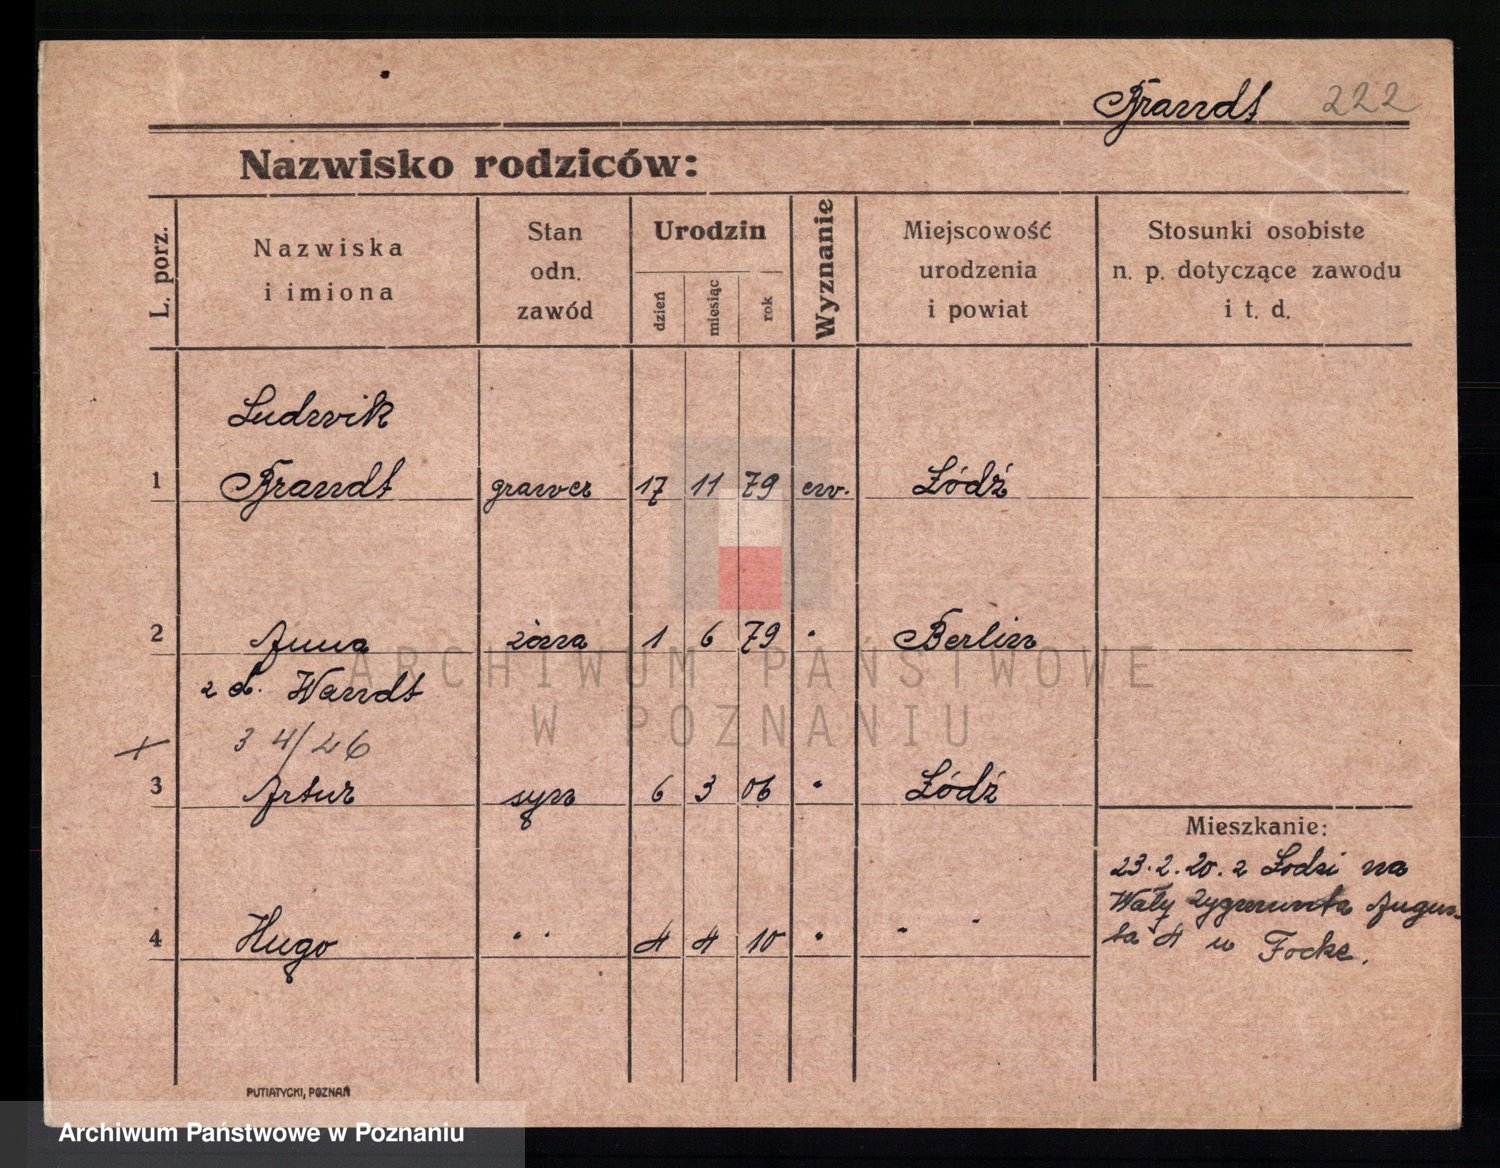 Brandt 222
Nazwisko rodziców:
L. porz.
Nazwiska
i imiona
Stan
odn.
zawód
Urodzin
dzień
miesiąc
rok
Wyznanie
Miejscowość
urodzenia
i powiat
Stosunki osobiste
n. p. dotyczące zawodu
i t. d.
Ludwik
1 Brandt grawer 17 11 79 ew. Łódź
2 Anna żona 1 6 79 " Berlin
z d. Wandt
3 4/26
3 Artur syn 6 3 06 " Łódź
4 Hugo " " 4 4 10 " " "
Mieszkanie:
23.2.20. z Łodzi na
Wały Zygmunta Augus-
ta 4 u Focke.
PUTIATYCKI, POZNAŃ
ARCHIWUM PAŃSTWOWE
W POZNANIU
Archiwum Państwowe w Poznaniu